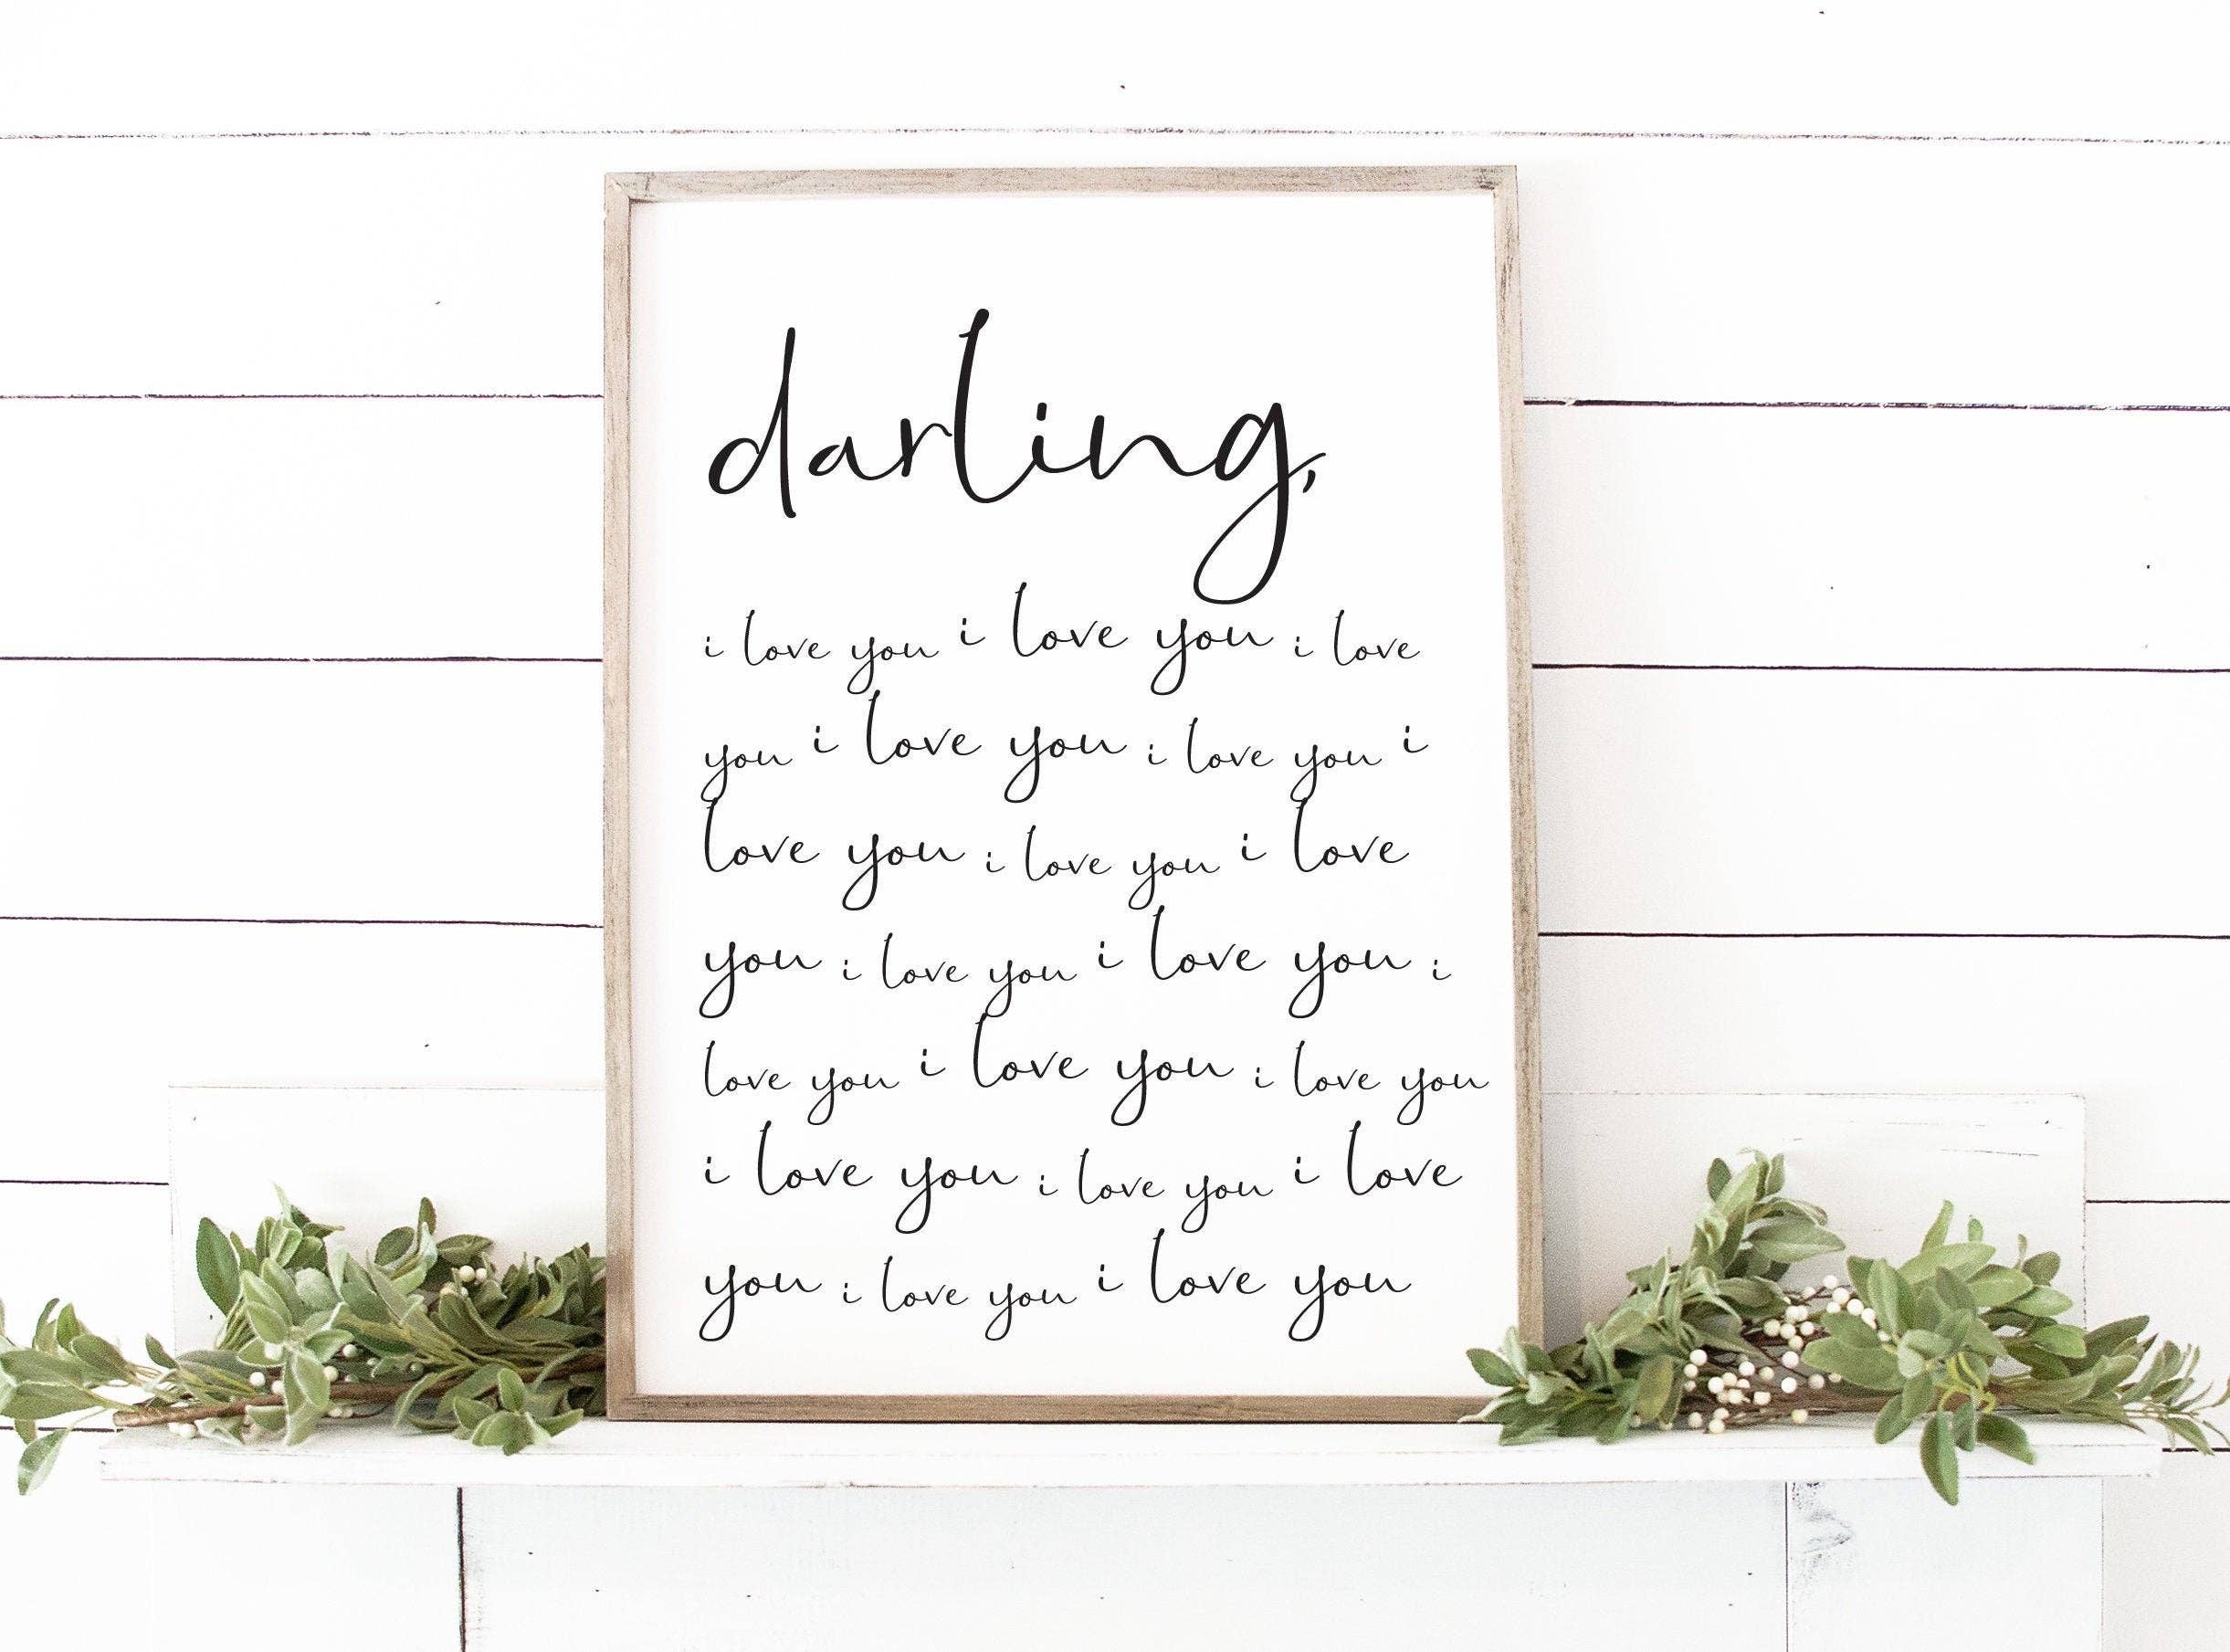 darling,
i love you i love you i love
you i love you i love you i
love you i love you i love
you i love you i love you i
love you i love you i love you
i love you i love you i love
you i love you i love you